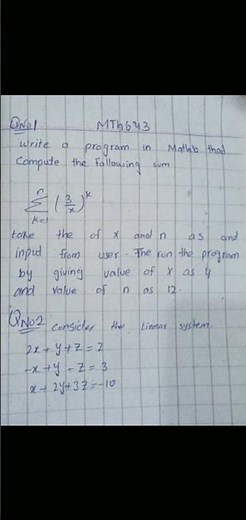 QNo1 MTh643
Write a program in Matlab that
Compute the following sum
n
∑ (3/x)^k
k=1
take the of x and n as and
input from user. The run the program
by giving value of x as 4
and value of n as 12.
QNo2 Consider the linear system.
2x+y+z=2
-x+y-z=3
x+2y+3z=-10